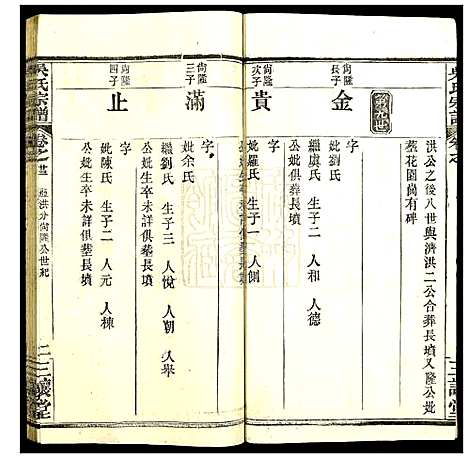 洪公之後八世與濟洪二公合葬長墳又隆公妣
葬花園尚有碑
尚隆長子
金
字
繼虞氏 生子二 人和 人德
公妣俱葬長墳
尚隆次子
貴
字
妣羅氏 生子一 人側
尚隆三子
滿
字
妣余氏
繼劉氏 生子三 人悅 人朝 人舉
公妣生卒未詳俱葬長墳
尚隆四子
止
字
妣陳氏 生子二 人元 人棟
公妣生卒未詳俱葬長墳
吳氏宗譜
洪分尚隆公世紀
三讓堂